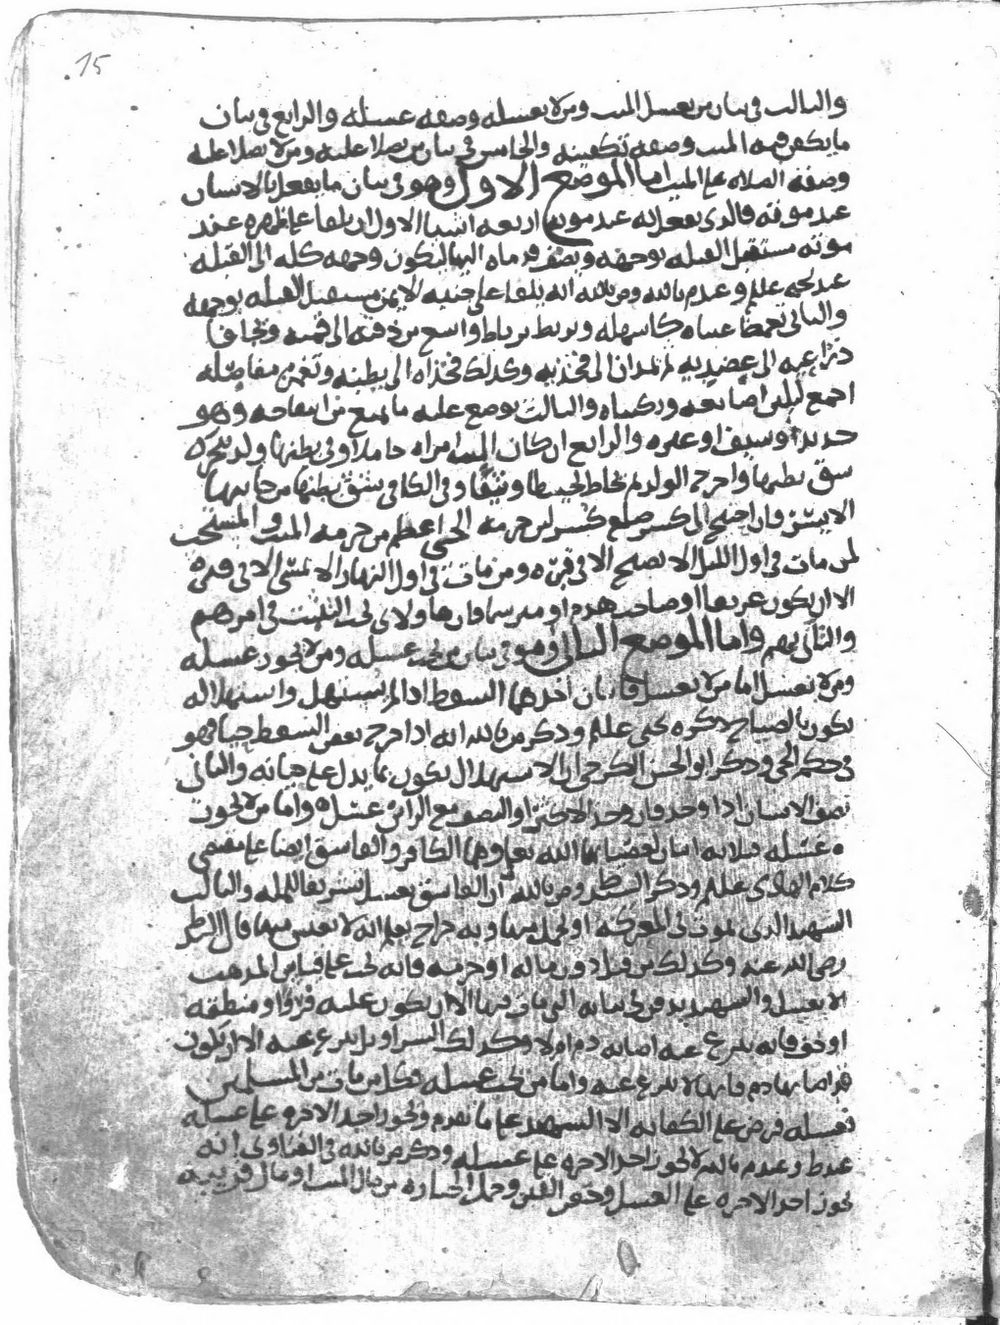 15
والثالث في بيان من يغسل الميت ومن لا يغسله وصفة غسله والرابع في بيان
ما يكفن فيه الميت وصفة تكفينه والخامس في بيان من يصلا عليه ومن لا يصلا عليه
وصفة الصلاة على الميت اما الموضع الاول وهو في بيان ما يفعل بالانسان
عند موته فالذي يفعل به عند موته اربعة اشيا الاول ان يلقا على ظهره عند
موته مستقبل القبلة بوجهه وتصف قدماه اليها ليكون وجهه كله الى القبلة
عند يحيى علم وعند م بالله وض بالله انه يلقا على جنبه الايمن مستقبل القبلة بوجهه
والثاني تغمض عيناه كاسهله ويربط برباط واسع من ذقنه الى قمته وتحافا
ذراعيه الى عضديه ثم تمدان الى فخذيه وكذلك فخذاه الى بطنه وتغمز مفاصله
اجمع لتلين اصابعه وركبتاه والثالث يوضع عليه ما يمنع من انتفاخه وهو
حديد او سيف او غيره والرابع ان كان الميت امراه حاملا وفي بطنها ولد يتحرك
شق بطنها واخرج الولد ثم تخاط بخيط وفي الكافي يشق بطنها من جانبها
الايسر فان احتيج الى كسر ضلع كسر لان حرمة الحي اعظم من حرمة الميت والمستحب
لمن مات في اول الليل الا يصبح الا في قبره ومن مات في اول النهار الا يمسي الا في قبره
الا ان يكون غريقا او صاحب هدم او مبرسما فان هاولاي يجب التثبت في امرهم
والتاني بهم واما الموضع الثاني وهو في بيان من يجب غسله ومن لا يجوز غسله
ومن لا يغسل اما من لا يغسل فاثنان احدهما السقط اذا لم يستهل واستهلاله
يكون بالصياح ذكره يحيى علم وذكر من بالله انه اذا خرج بعض السقط حيا فهو
في حكم الحي وذكر ابو الحسن الكرخي ان الاستهلال يكون بما يدل على حياته والثاني
نصف الانسان اذا وجد فان وجد الاكثر او النصف مع الراس غسل واما من لا يجوز
غسله فثلاثه اثنان لعصيانهما الله تعلى وهما الكافر والفاسق ايضا على مقتضى
كلام الهادي علم وذكر وض بالله ان الفاسق يغسل تشريفا للملة والثالث
الشهيد الذي يموت في المعركة او يحمل منها وبه جراح يعلم انه لا يعيش منها قال
رضي الله عنه وكذلك من قتل دون ماله او حرمته فانه يجب على قياس المذهب
الا يغسل والشهيد يدفن في ثيابه التي مات فيها الا ان يكون عليه فروا او منطقه
او خف فانه ينزع عنه اصابه دم ام لا وكذلك السراويل ينزع عنه الا ان يكون
قد اصابها دم فانها لا تنزع عنه واما من يجب غسله فكل من مات من المسلمين
فغسله فرض على الكفاية الا الشهيد على ما تقدم ولا يجوز اخذ الاجره على غسله
عند ط وعند م بالله لا يجوز اخذ الاجره على غسله وذكر ض بالله في الفتاوى انه
يجوز اخذ الاجره على الغسل وحفر القبر وحمل الجنازه من مال الميت او مال قريبه